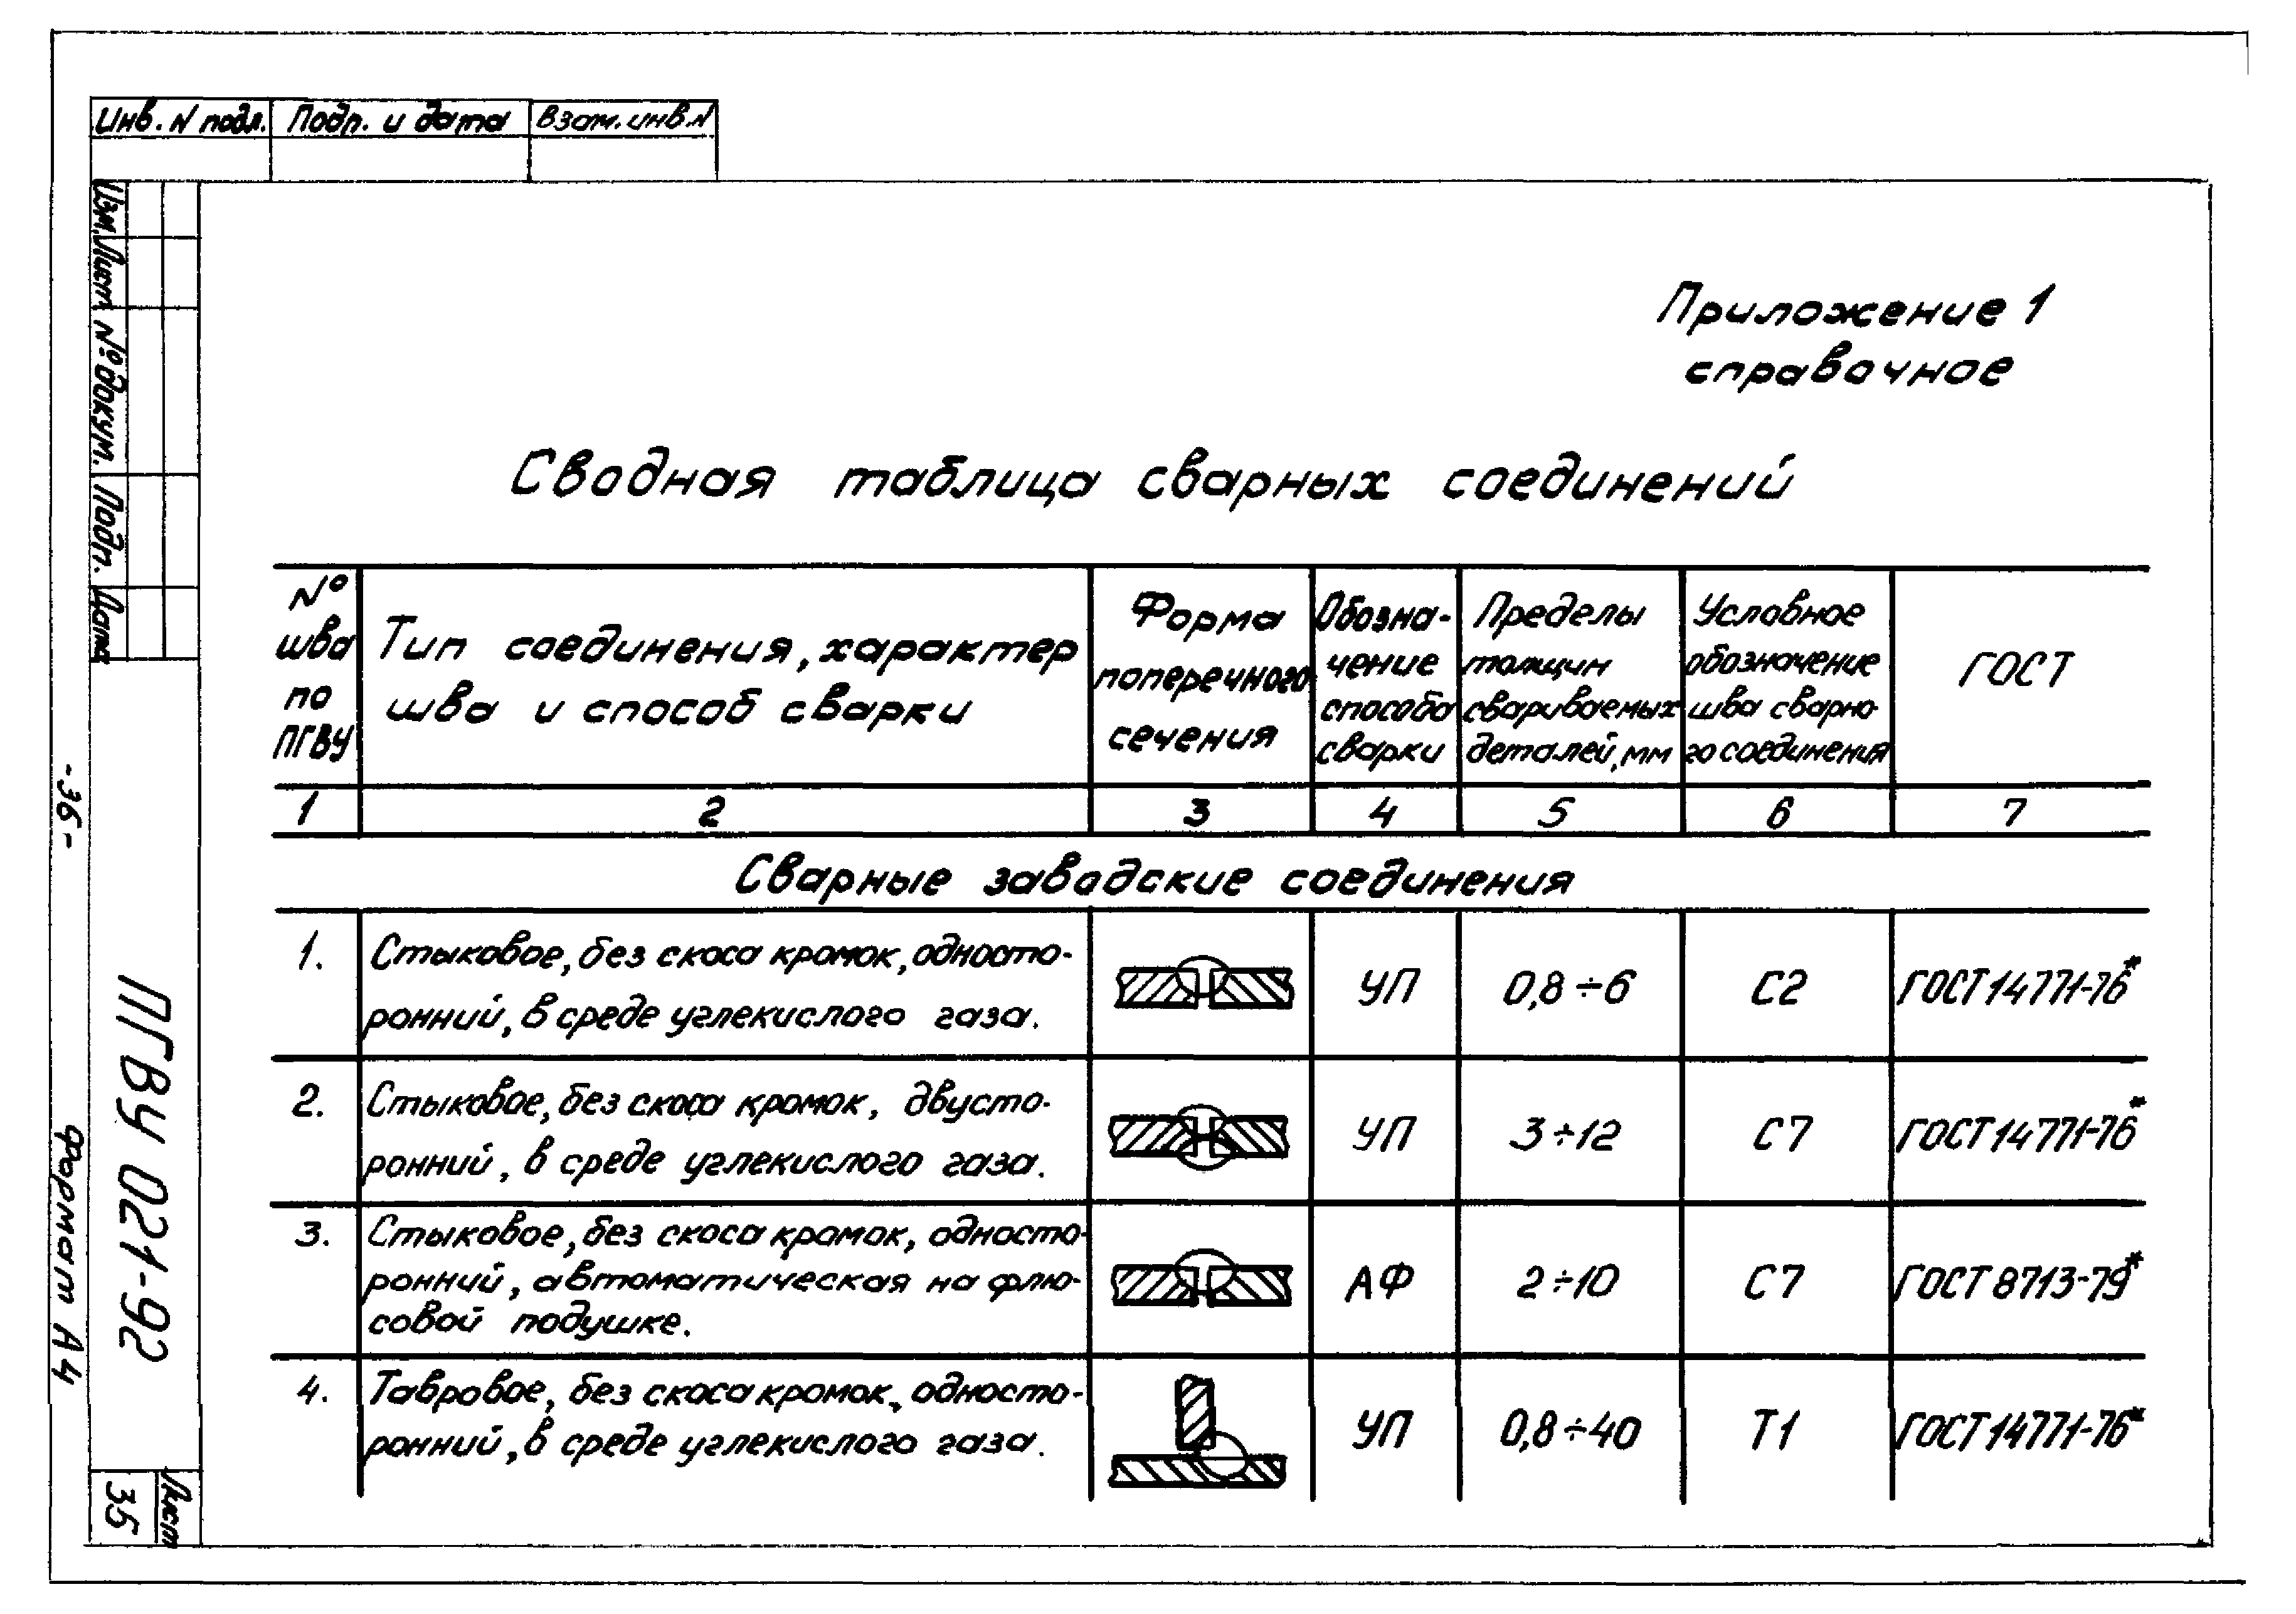 Инв. N подл. Подп. и дата Взам. инв. N
Изм. Лист № докум. Подп. Дата
Приложение 1
справочное
Сводная таблица сварных соединений
№
шва
по
ПГВУ
Тип соединения, характер
шва и способ сварки
Форма
поперечного
сечения
Обозна-
чение
способа
сварки
Пределы
толщин
свариваемых
деталей, мм
Условное
обозначение
шва сварно
го соединения
ГОСТ
1 2 3 4 5 6 7
Сварные заводские соединения
1. Стыковое, без скоса кромок, односто-
ронний, в среде углекислого газа.
УП 0,8÷6 С2 ГОСТ 14771-76*
2. Стыковое, без скоса кромок, двусто-
ронний, в среде углекислого газа.
УП 3÷12 С7 ГОСТ 14771-76*
3. Стыковое, без скоса кромок, односто-
ронний, автоматическая на флю-
совой подушке.
АФ 2÷10 С7 ГОСТ 8713-79*
4. Тавровое, без скоса кромок, односто-
ронний, в среде углекислого газа.
УП 0,8÷40 Т1 ГОСТ 14771-76*
-36-
ПГВУ 021-92
Формат А4
Лист
35